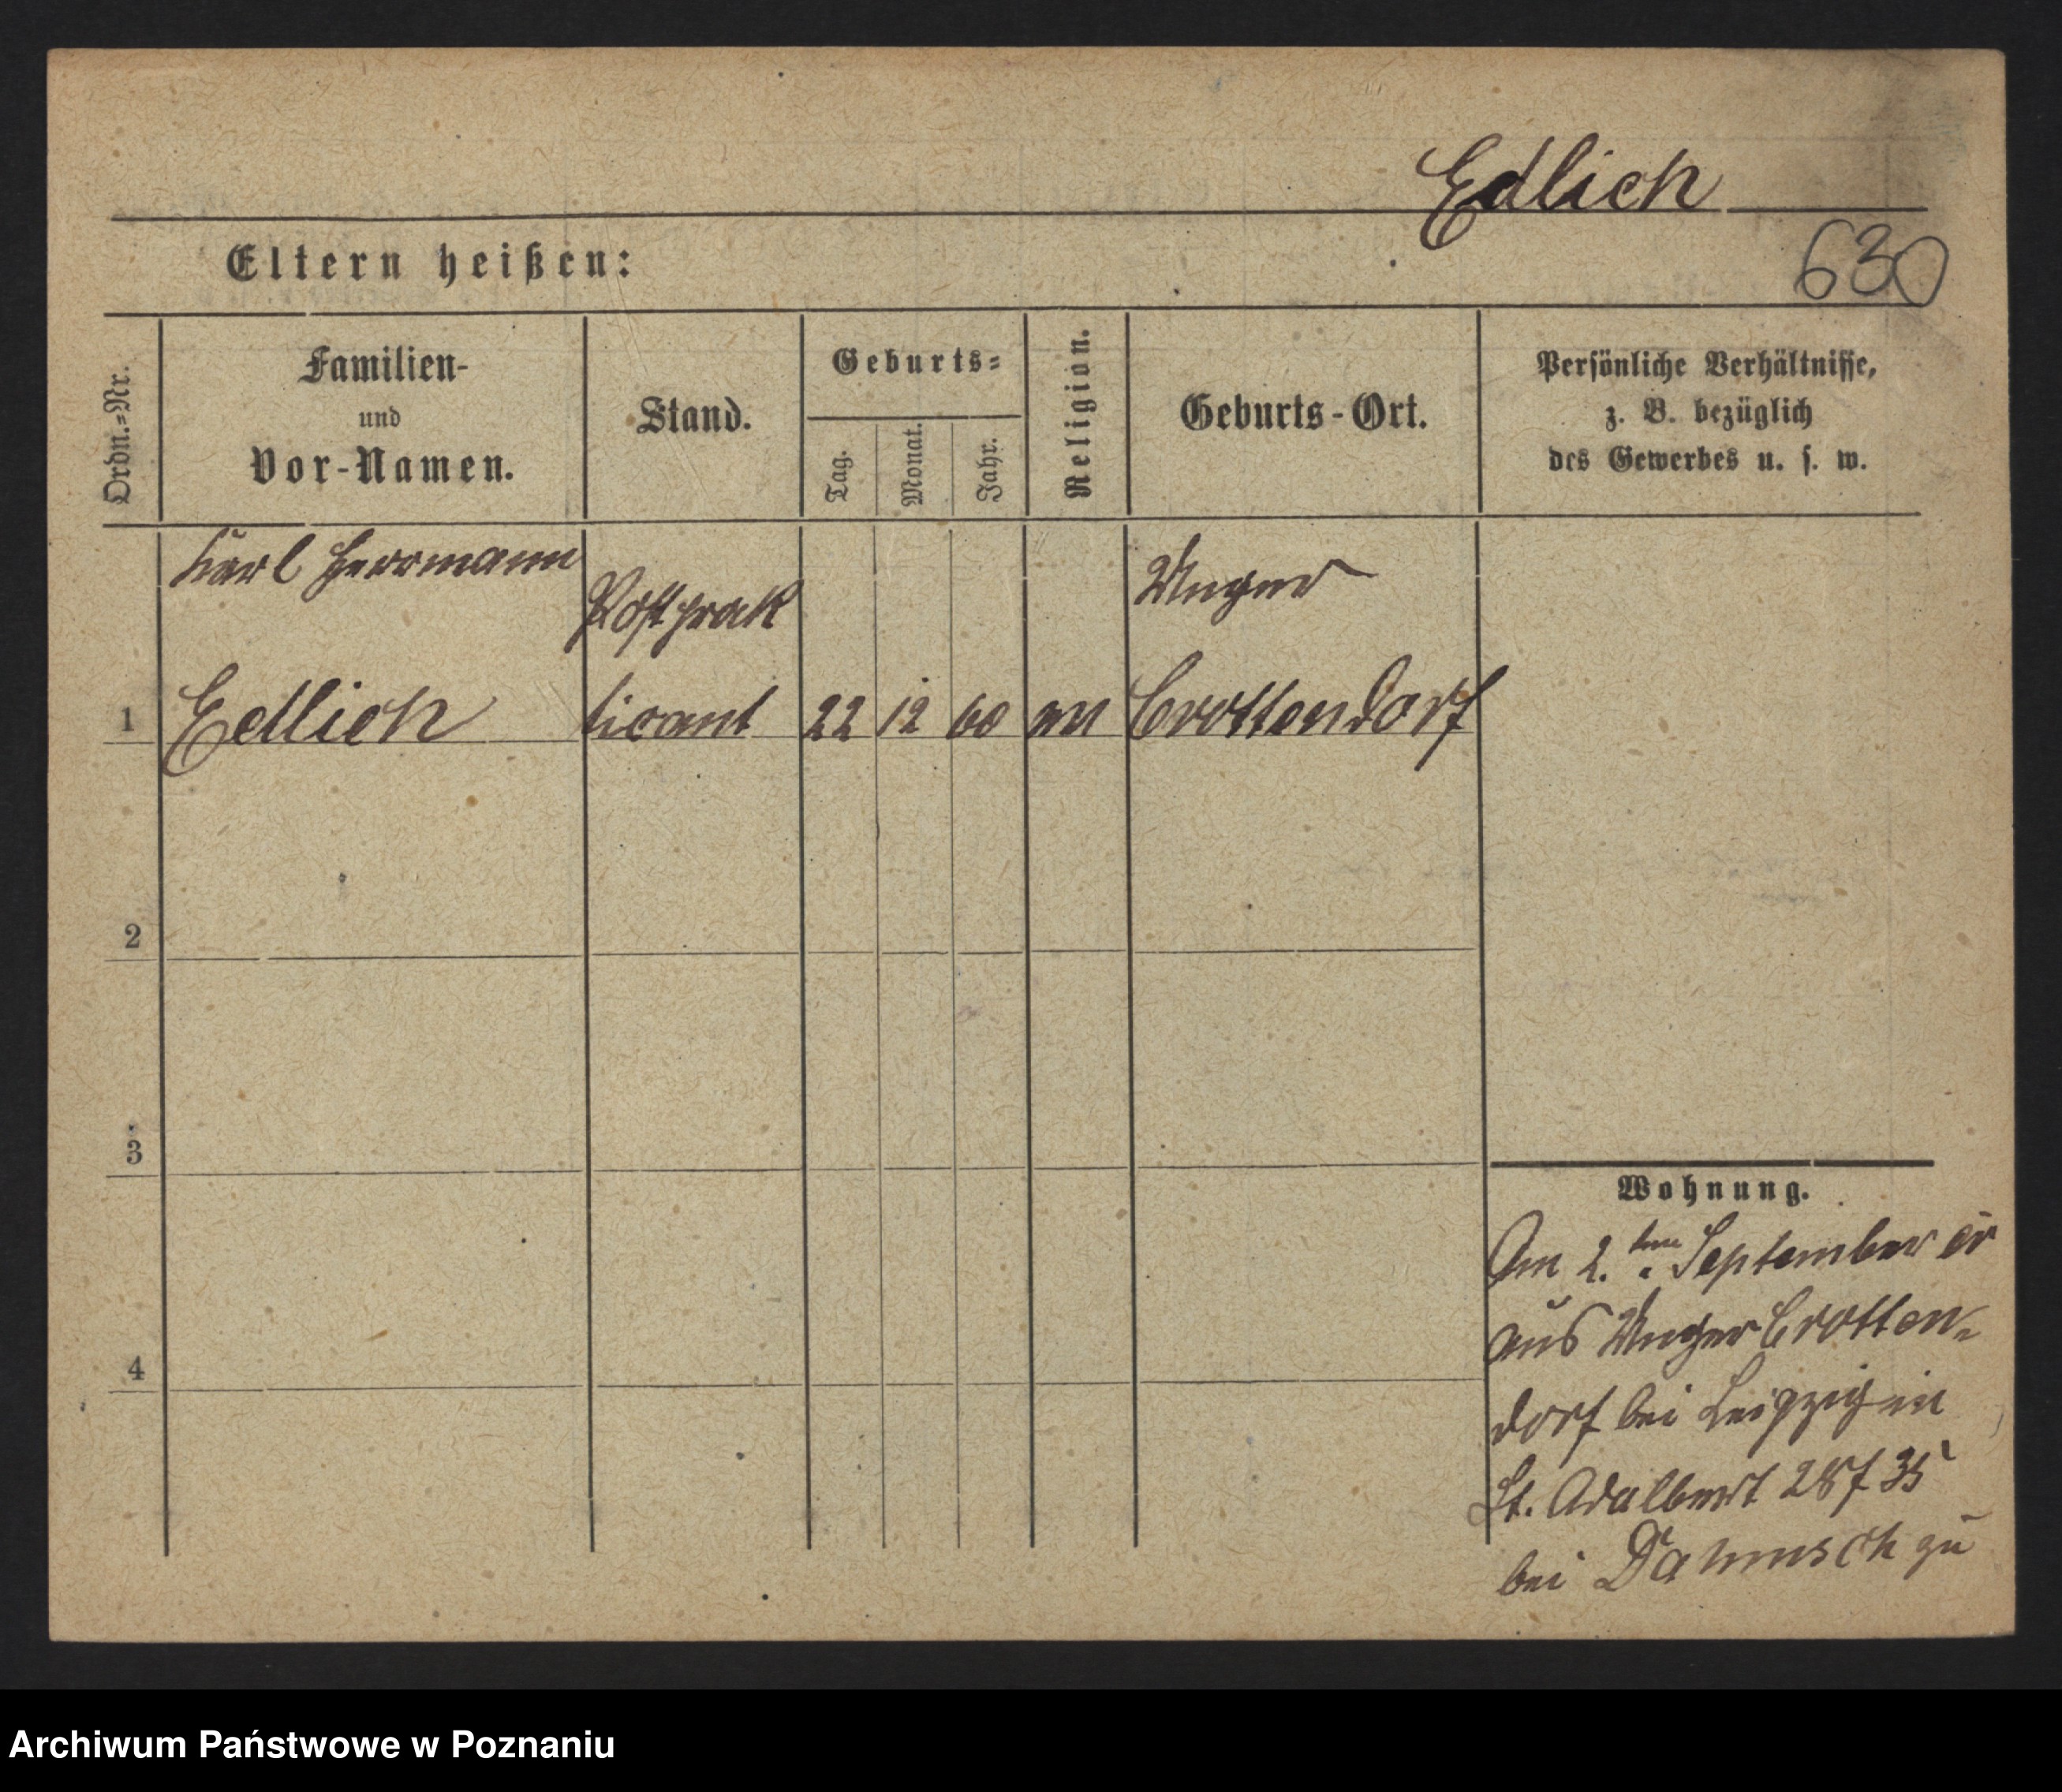 Edlich
630
Eltern heißen:
Ordn.=Nr.
Familien-
und
Vor-Namen.
Stand.
Geburts=
Tag.
Monat.
Jahr.
Religion.
Geburts-Ort.
Persönliche Verhältnisse,
z. B. bezüglich
des Gewerbes u. s. w.
Karl Herrmann
Postprak
Unger
1 Edlich ticant 22 12 60 Crottendorf
2
3
4
Wohnung.
Am 2. ten September cr
aus Unger Crotten=
dorf bei Leipzig in
St. Adalbert 28 35
bei zu
Archiwum Państwowe w Poznaniu